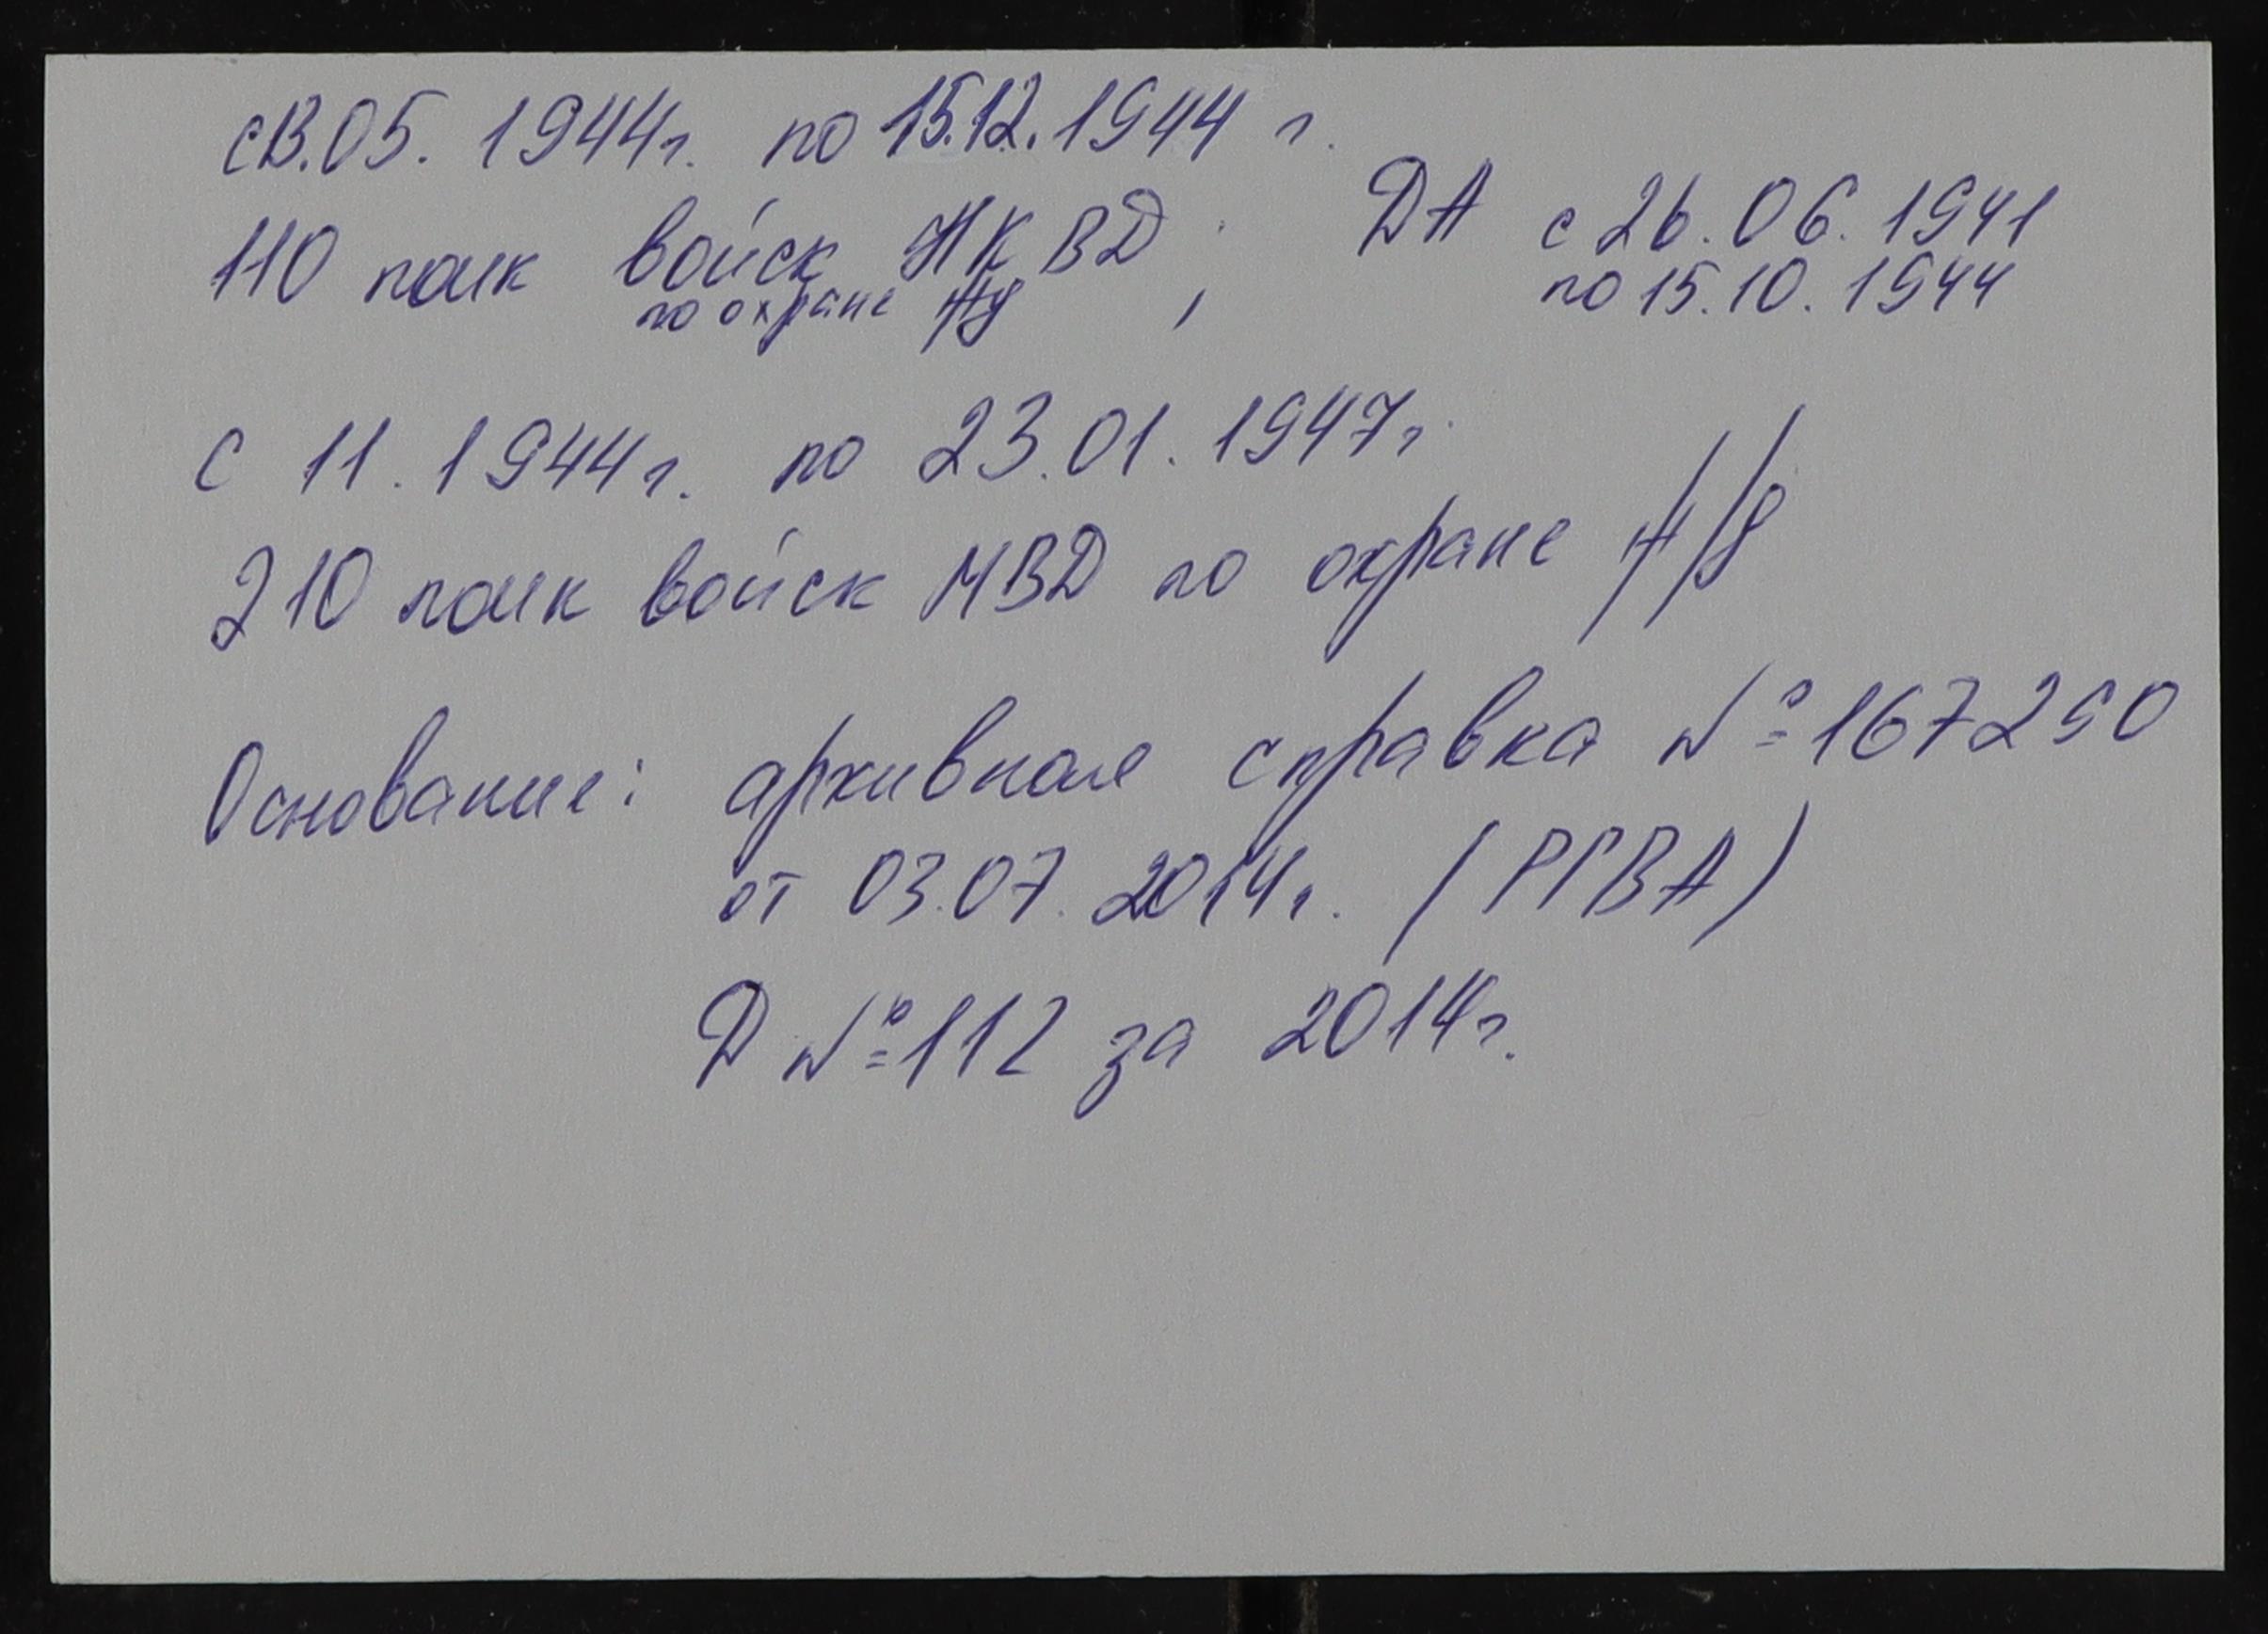 с 13.05. 1944г. по 15.12.1944 г.
110 полк войск НКВД ; ДА с 26.06.1941
по охране ж/д , по 15.10.1944
с 11.1944г. по 23.01.1947г.
210 полк войск МВД по охране ж/д
Основание: архивная справка №167290
от 03.07.2014г. (РГВА)
Д №112 за 2014г.